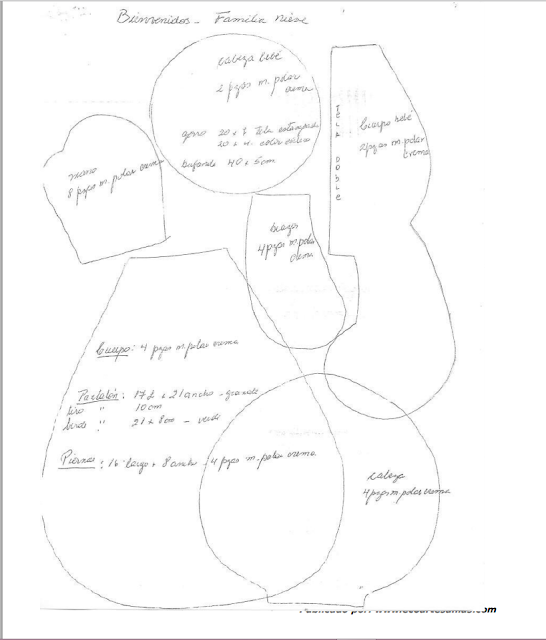 Bienvenidos - Familia nieve
cabeza bebé
2 pzas m. polar
crema
gorro 20 x 7 tela estampada
bufanda 40 x 5cm
mano
8 pzas m. polar crema
TELA DOBLE
Cuerpo bebé
2 pzas m. polar
crema
brazos
4 pzas m. polar
crema
Cuerpo: 4 pzas m. polar crema
Pantalón: 17 L x 21 ancho - grande
tiro " 10 cm
" 21 x 8cm - verde
Piernas: 16 largo x 8 ancho - 4 pzas m. polar crema
cabeza
4 pzas m. polar crema